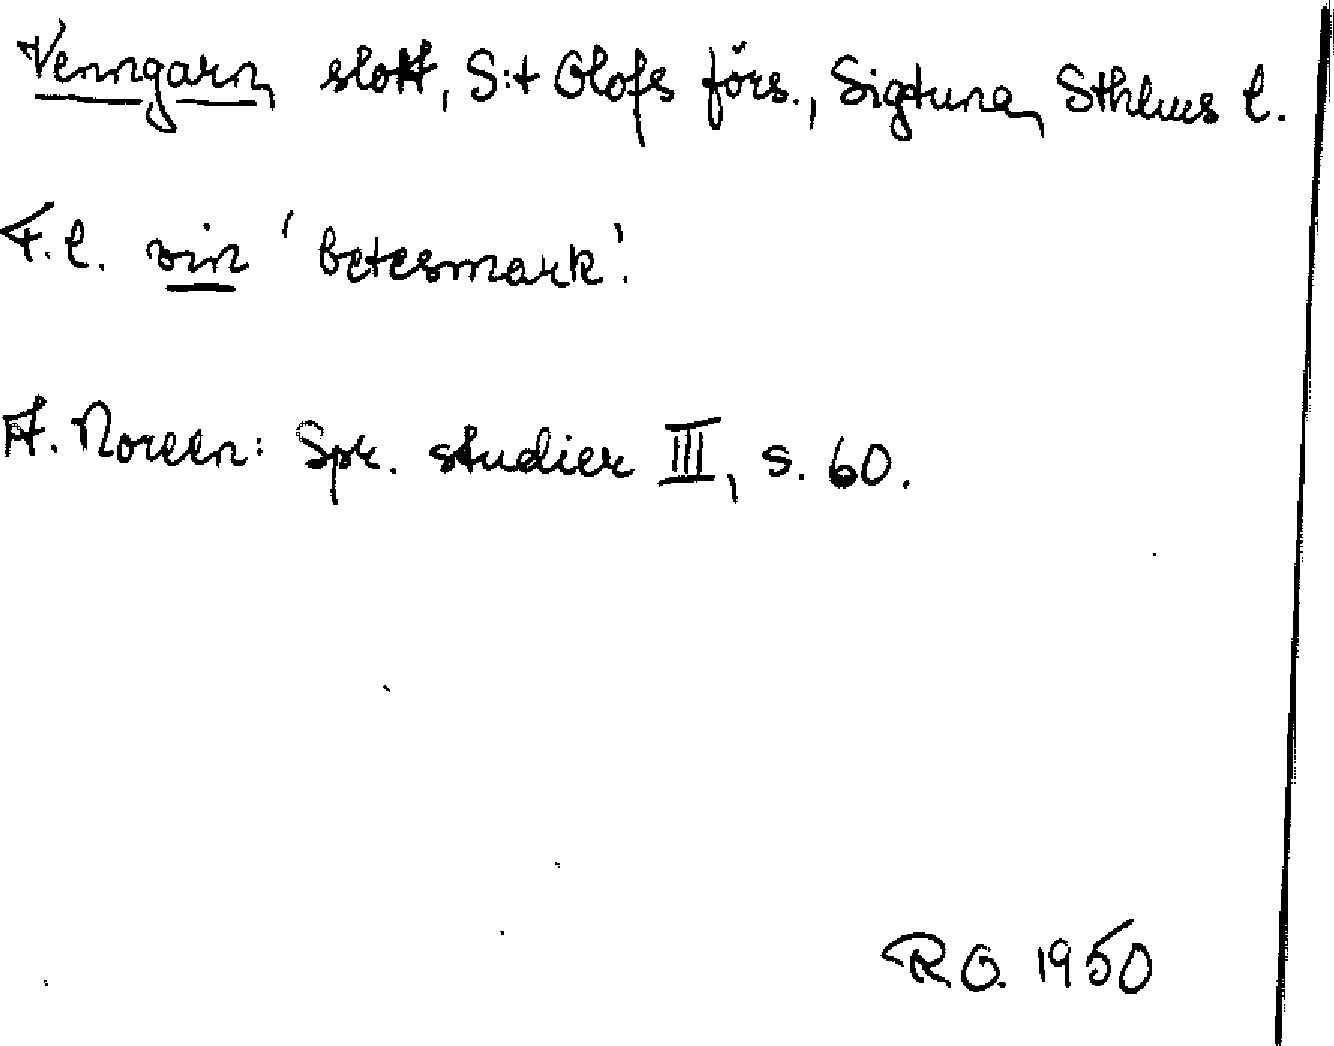 Venngarn, slott, S:t Olofs förs., Sigtuna, Sthlms l.
F.l. vin 'betesmark'.
A. Noreen: Spr. studier III, s. 60.
R.O. 1950